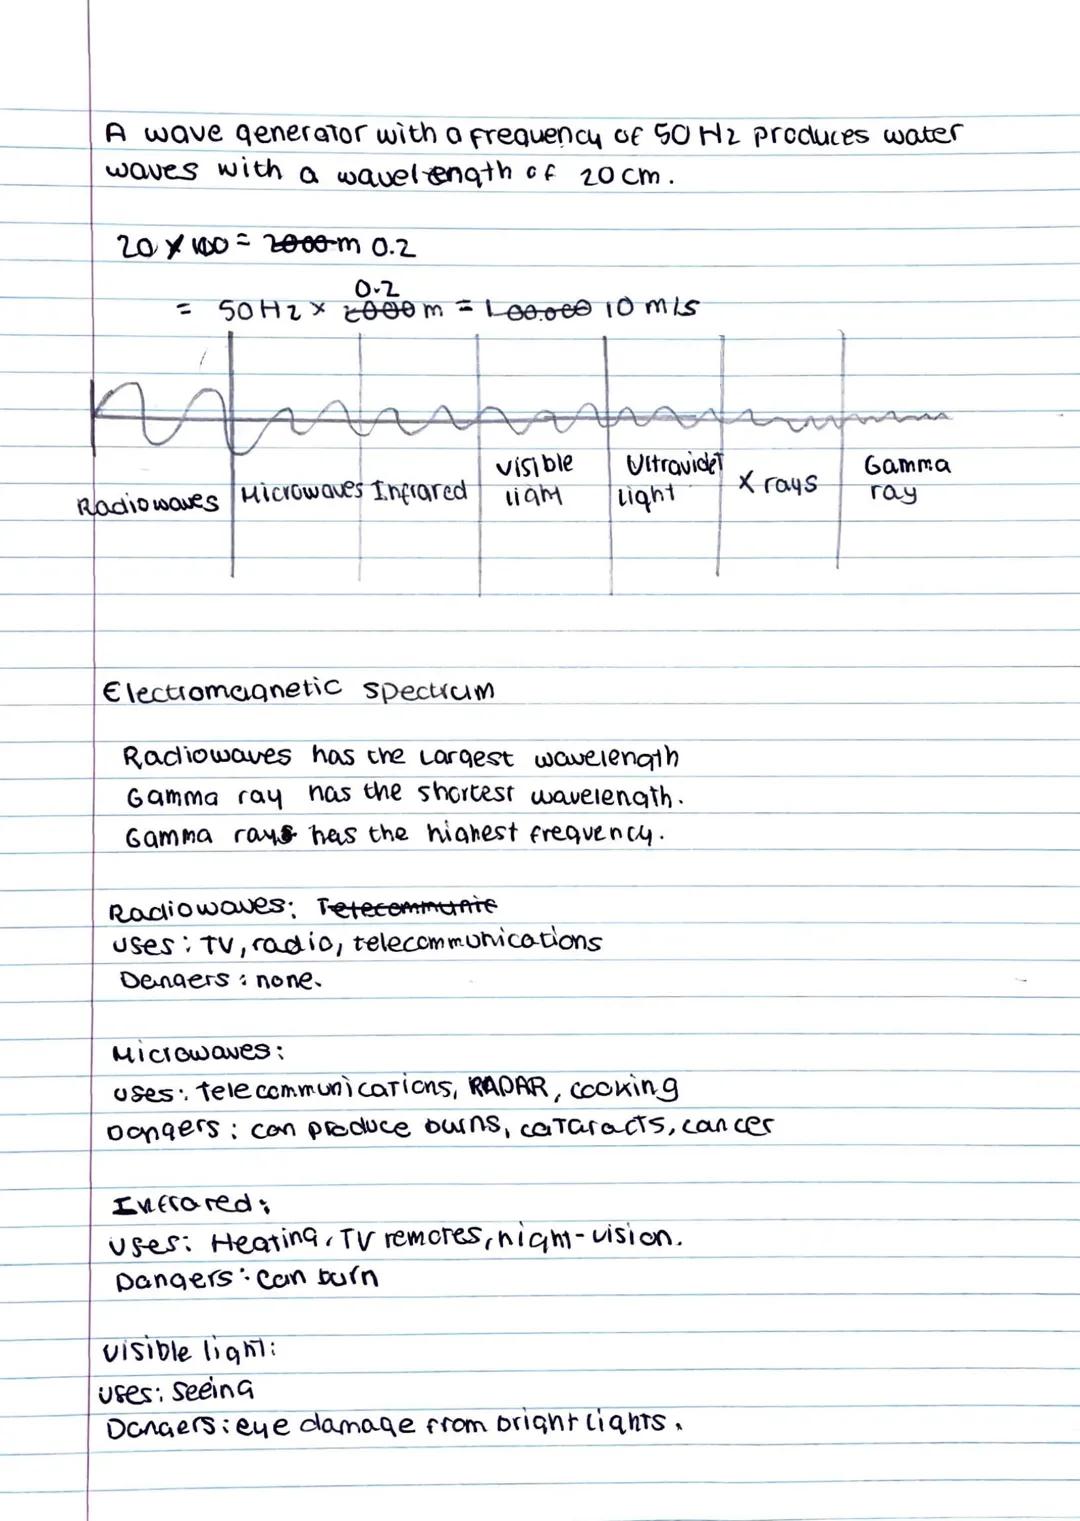 A wave generator with a frequency of 50 Hz produces water
waves with a wavelength of 20cm.
20 × 100 = 2000 m 0.2
0.2
= 50Hz × 2000 m = 100.000 10 m/s
Radiowaves Microwaves Infrared visible light Ultraviolet Light X rays Gamma ray
Electromagnetic spectrum
Radiowaves has the Largest wavelength
Gamma ray has the shortest wavelength.
Gamma rays has the highest frequency.
Radiowaves: Telecommunic
uses: TV, radio, telecommunications
Dangers: none.
Microwaves:
uses: telecommunications, RADAR, cooking
Dangers: can produce burns, cataracts, cancer
Infrared:
uses: Heating, TV remotes, night-vision.
Dangers: can burn
visible light:
uses: seeing
Dangers: eye damage from bright lights.